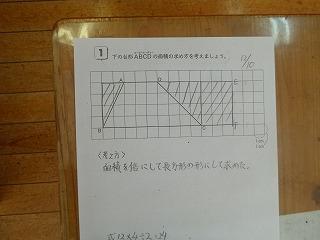 1 下の台形ABCDの面積の求め方を考えましょう。
12/10
A D E
B C F
1cm
1cm
〈考え方〉
面積を倍にして長方形の形にして求めた。
式12×4÷2=24